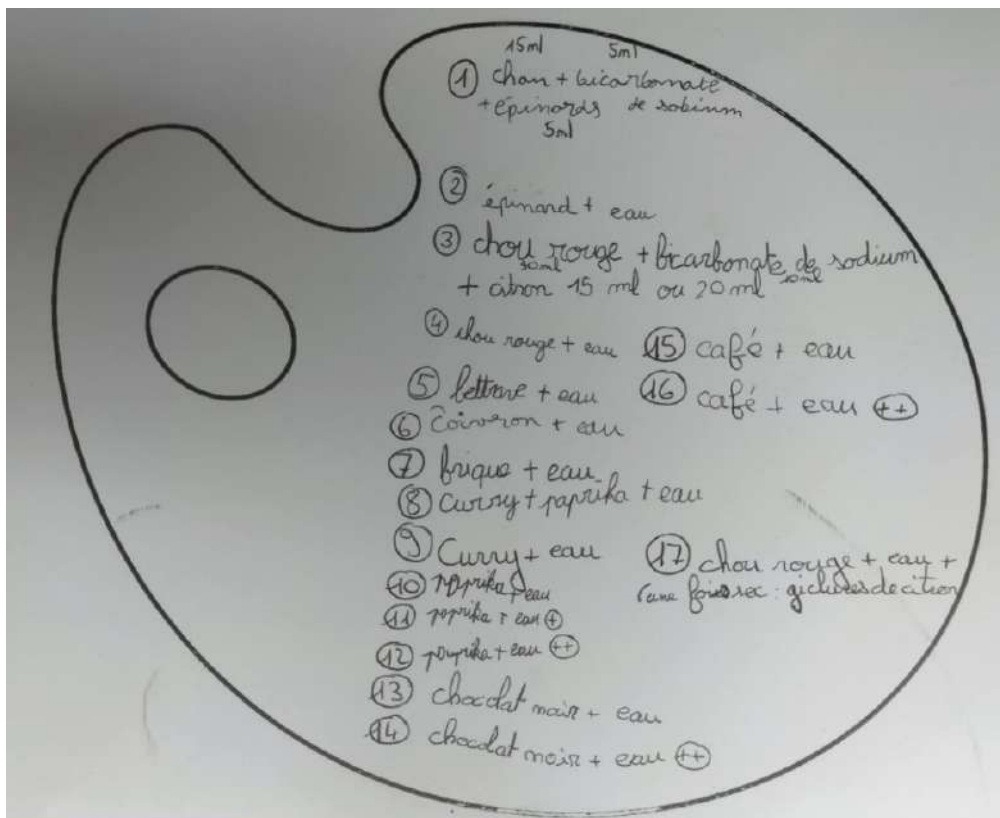 15ml 5ml
① chou + bicarbonate
+ épinards de sodium
5ml
② épinard + eau
③ chou rouge + bicarbonate de sodium
30ml 10ml
+ citron 15 ml ou 20 ml
④ chou rouge + eau
⑤ bettrave + eau
⑥ + eau
⑦ brique + eau
⑧ Curry + paprika + eau
⑨ Curry + eau
⑩ paprika + eau
⑪ paprika + eau ⊕
⑫ paprika + eau ++
⑬ chocolat noir + eau
⑭ chocolat noir + eau ++
⑮ café + eau
⑯ café + eau ++
⑰ chou rouge + eau +
(une fois sec : giclures de citron